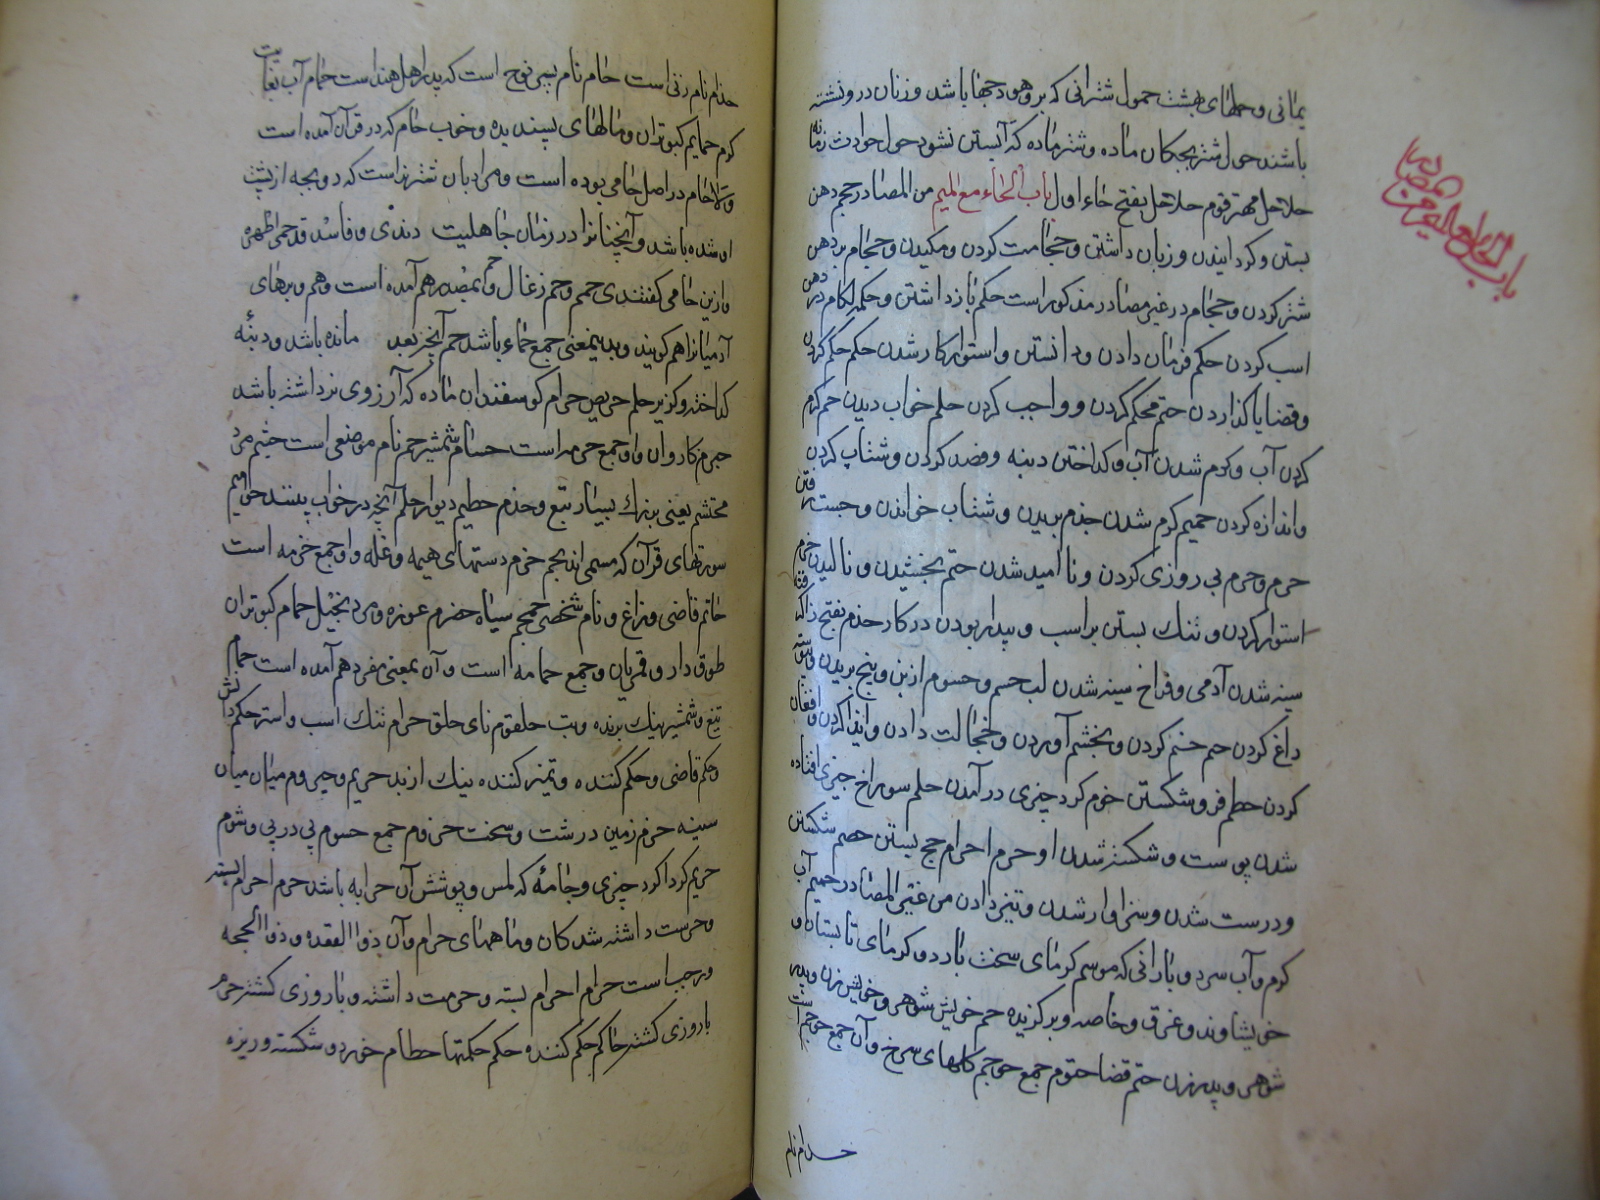 یمانی و حلهای بهشت حمول شترانی که برو هودجها باشد و زنان درو نشته
باشند حول شتر بچکان ماده و شتر ماده که آبستن نشود حول حوادث زمانه
حلاحل مهتر قوم حلاحل بفتح حاء اول باب الحاء مع المیم من المصادر حجم دهن
بستن و کردانیدن و زیان داشتن و حجامت کردن و مکیدن و حجام بر دهن
شتر کردن و حجام در غیر مصادر مذکور است حکم بازداشتن و حکمه لکام در دهن
اسب کردن حکم فرمان دادن و دانستن و استوار کار شدن حکم حکم کردن
و قضایا کذاردن حتم محکم کردن و واجب کردن حلم خواب دیدن حم کرم
کردن آب و کرم شدن آب و کداختن دنبه و قصد کردن و شتاب کردن
و اندازه کردن حمیم کرم شدن حذم بریدن و شتاب خواندن و جست رفتن
حرم و حرم بی روزی کردن و نا امید شدن حتم بخشیدن و نالیدن حزم
استوار کردن و تنك بستن بر اسب و بیدار بودن در کار حذم بفتح ذا
سینه شدن آدمی و فراخ سینه شدن لب حسم و حسوم از بن و بیخ بریدن
داغ کردن حم خشم کردن و بخشم آوردن و خجالت دادن و ایذا کردن و افغان
کردن حطم فرو شکستن خوم کرد چیزی در آمدن حلم سوراخ چیزی افتاده
شدن پوست و شکسته شدن او حرم احرام حج بستن حصم شکستن
و درست شدن و سزاوار شدن و تیزدادن من غیر المصادر حمیم آب
کرم و آب سرد و بارانی که موسم کرمای سخت بارد و کرمای تابستان و
خویشاوند و عرق و خاصه و برکزیده حم خویش شوهر و خویش زن و پدر
شوهر و پدر زن حتم قضا حتوم جمع حوجم کلهای سرخ و آن جمع حوجم است
حذام نام
باب الحاء مع المیم من المصادر
حذام نام زنی است حام نام پسر نوح است که پدر اهل هند است حمام آب بغایت
کرم حمایم کبوتران و مالهای پسندیده و خوب حام که در قرآن آمده است
و لا حام در اصل حامی بوده است و مراد بان شتر نر است که ده بچه از پشت
او شده باشد و آنچنانرا در زمان جاهلیت
و ازین حامی کفتندی حمم و حم زغال و بمصدر هم آمده است و هم و برهای
آدمیانرا هم کویند و بدیمعنی جمع حماء باشد حم آنچه بعد مانده باشد و دنبهٔ
کداخته و کزیر حلم حریص حرام کوسفندان ماده که آرزوی نر داشته باشد
حرم کاروان و او جمع حرمه است حسام شمشیر حم نام موضعی است حشم مرد
محتشم یعنی بزرك بسیار تبع و خدم حطیم دیوار حلم آنچه در خواب بینند حوامیم
سورتهای قرآن که مسمی اند بحم حزم دستهای هیمه و غله و او جمع حزمه است
حاتم قاضی و زاغ و نام شخصی حمحم سیاه حضرم غوره و مرد بخیل حمام کبوتران
طوق دار و قمریان و جمع حمامه است و آن بمعنی مفرد هم آمده است حسام
تیغ و شمشیر نیك برنده و تب حلقوم نای حلق حزام تنك اسب و استر حکم دانش
و حکم قاضی و حکم کننده و تمیز کننده نیك از بد حریم و حیزوم میان میان
سینه حزم زمین درشت و سخت حزوم جمع حسوم پی در پی و شوم
حریم کرداکرد چیزی و جامهٔ که لمس و پوشش آن حرام باشد حرم احرام بسته
و حرمت داشته شدکان و ماههای حرام و آن ذوا القعده و ذوا الحجه
و رجب است حرام احرام بسته و حرمت داشته و باروزی کشته حرم
باروزی کشته حاکم حکم کننده حکم حکمتها حطام خورد و شکسته و ریزه